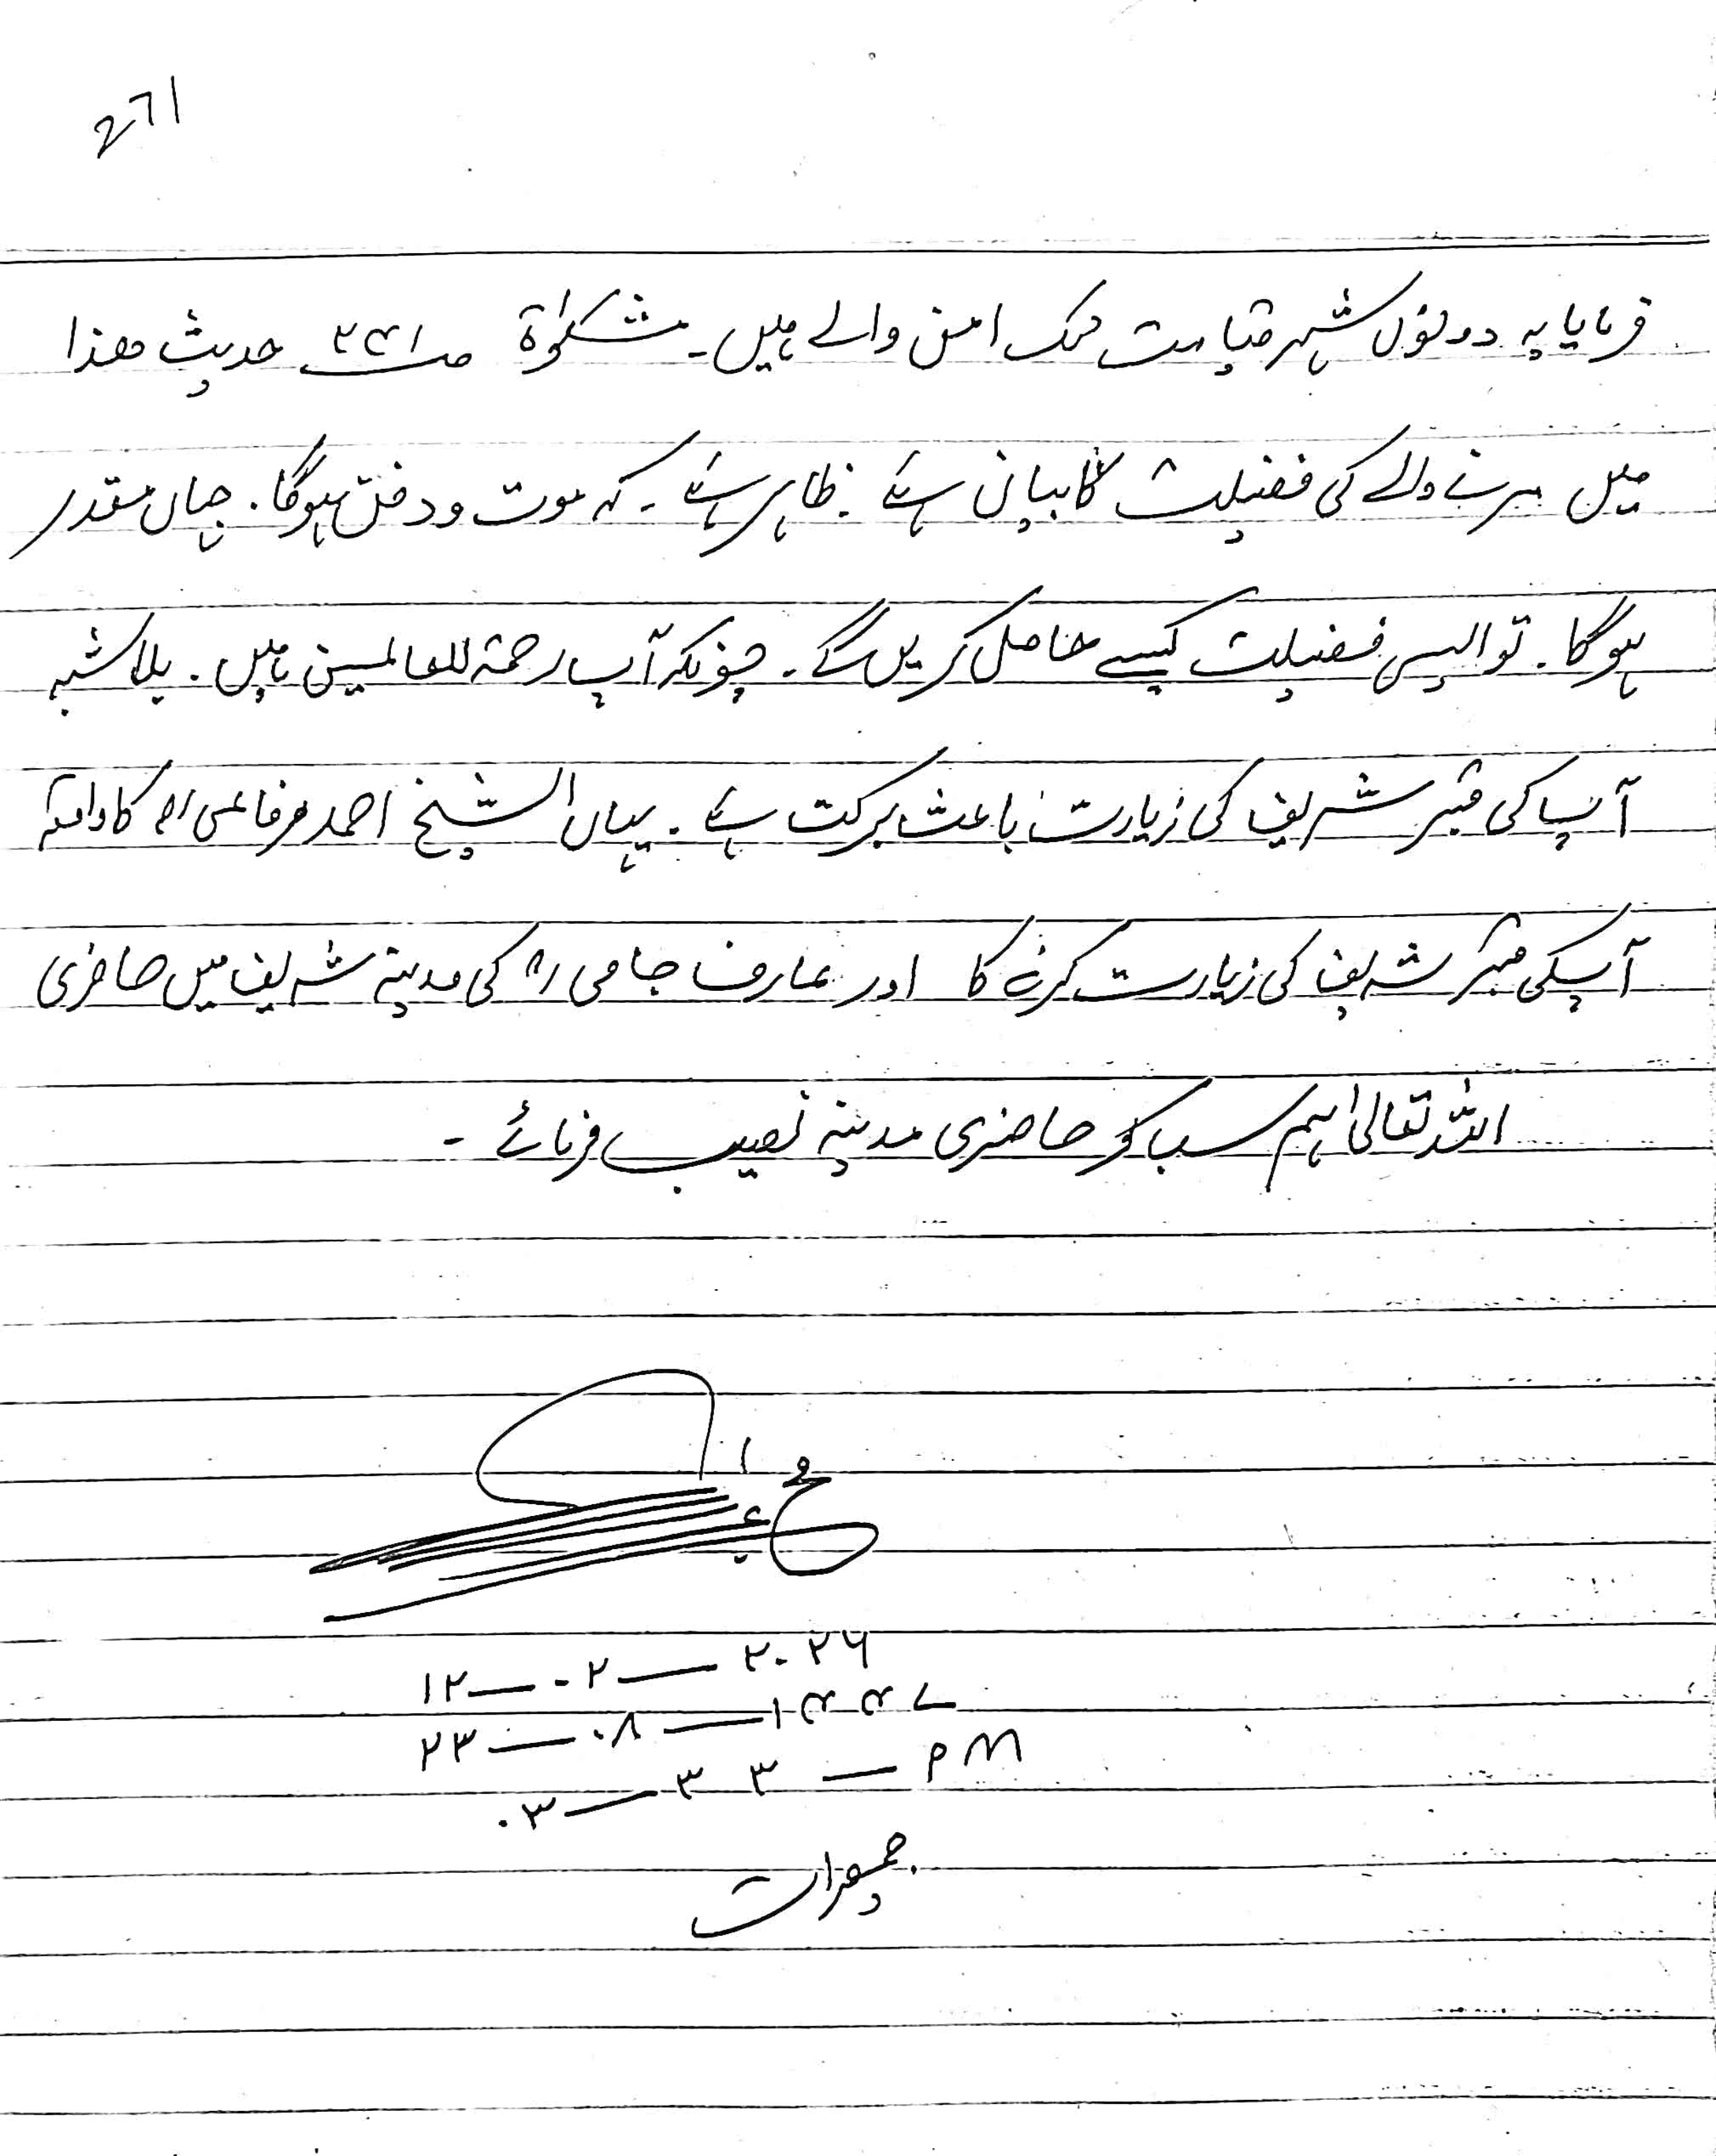 271
فرمایا یہ دونوں شہر قیامت تک امن والے ہیں۔ مشکوٰۃ صـ ۲۴۱ حدیث ھذا
میں مرنے والے کی فضیلت کا بیان ہے۔ ظاہر ہے۔ کہ موت و دفن ہوگا۔ جہاں مقدر
ہوگا۔ تو ایسی فضیلت کیسے حاصل کریں گے۔ چونکہ آپ رحمۃ للعالمین ہیں۔ بلا شبہ
آپ کی قبر شریف کی زیارت باعث برکت ہے۔ یہاں الشیخ احمد رفاعی رح کا واقعہ
آپکی قبر شریف کی زیارت کرنے کا اور عارف جامی رح کی مدینہ شریف میں حاضری
اللہ تعالیٰ ہم سب کو حاضری مدینہ نصیب فرمائے۔
۱۲ — ۰۲ — ۲۰۲۶
۲۳ — ۰۸ — ۱۴۴۷
۰۳ — ۳۳ — PM
جمعرات